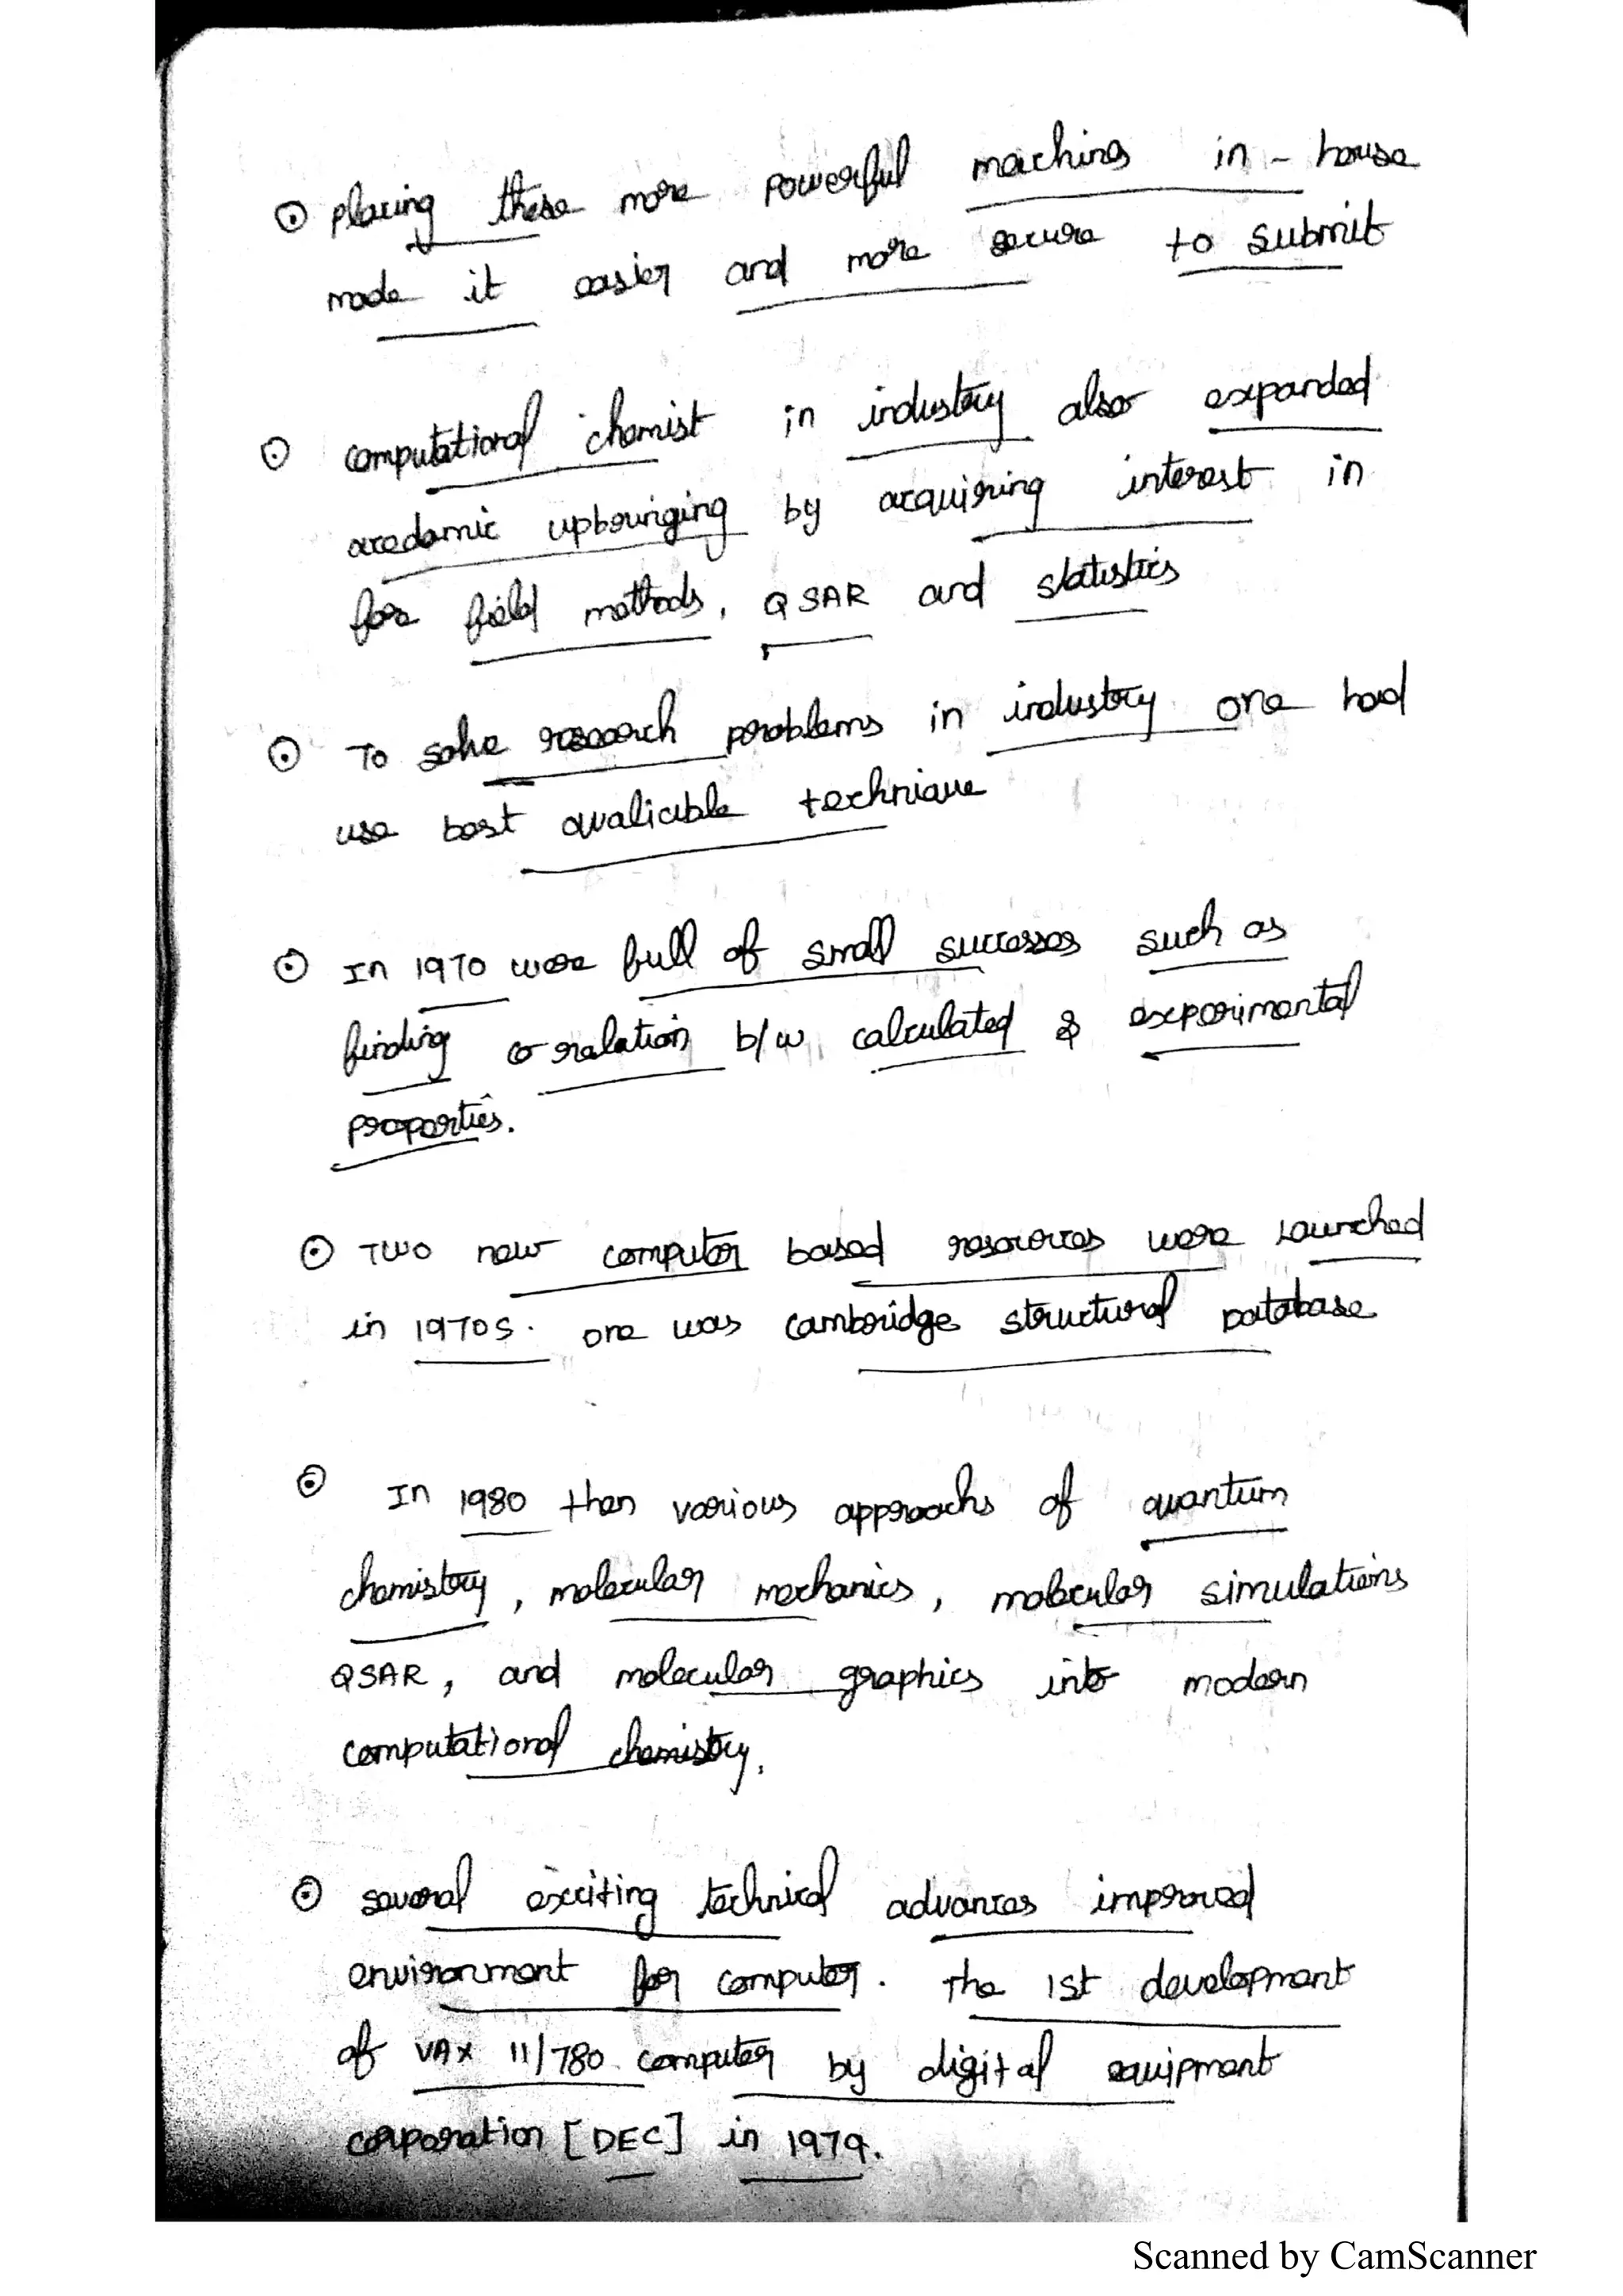 ⊙ placing these more powerful machins in - house
made it easier and more secure to submit
⊙ computational chemist in industry also expanded
acedamic upbringing by acquiring interest in
for field methods, QSAR and statistics
⊙ To solve research problems in industry one had
use best avaliable technique
⊙ In 1970 were full of small successes such as
finding co relation b/w calculated & experimental
properties.
⊙ Two new computer based resources were Launched
in 1970s. one was cambridge structural Database
⊙ In 1980 then various approachs of quantum
chemistry, molecular mechanics, molecular simulations
QSAR, and molecular graphics into modern
computational chemistry.
⊙ several exciting technical advances improved
environment for computer. The 1st development
of VAX 11/780 computer by digital equipment
corporation [DEC] in 1979.
Scanned by CamScanner